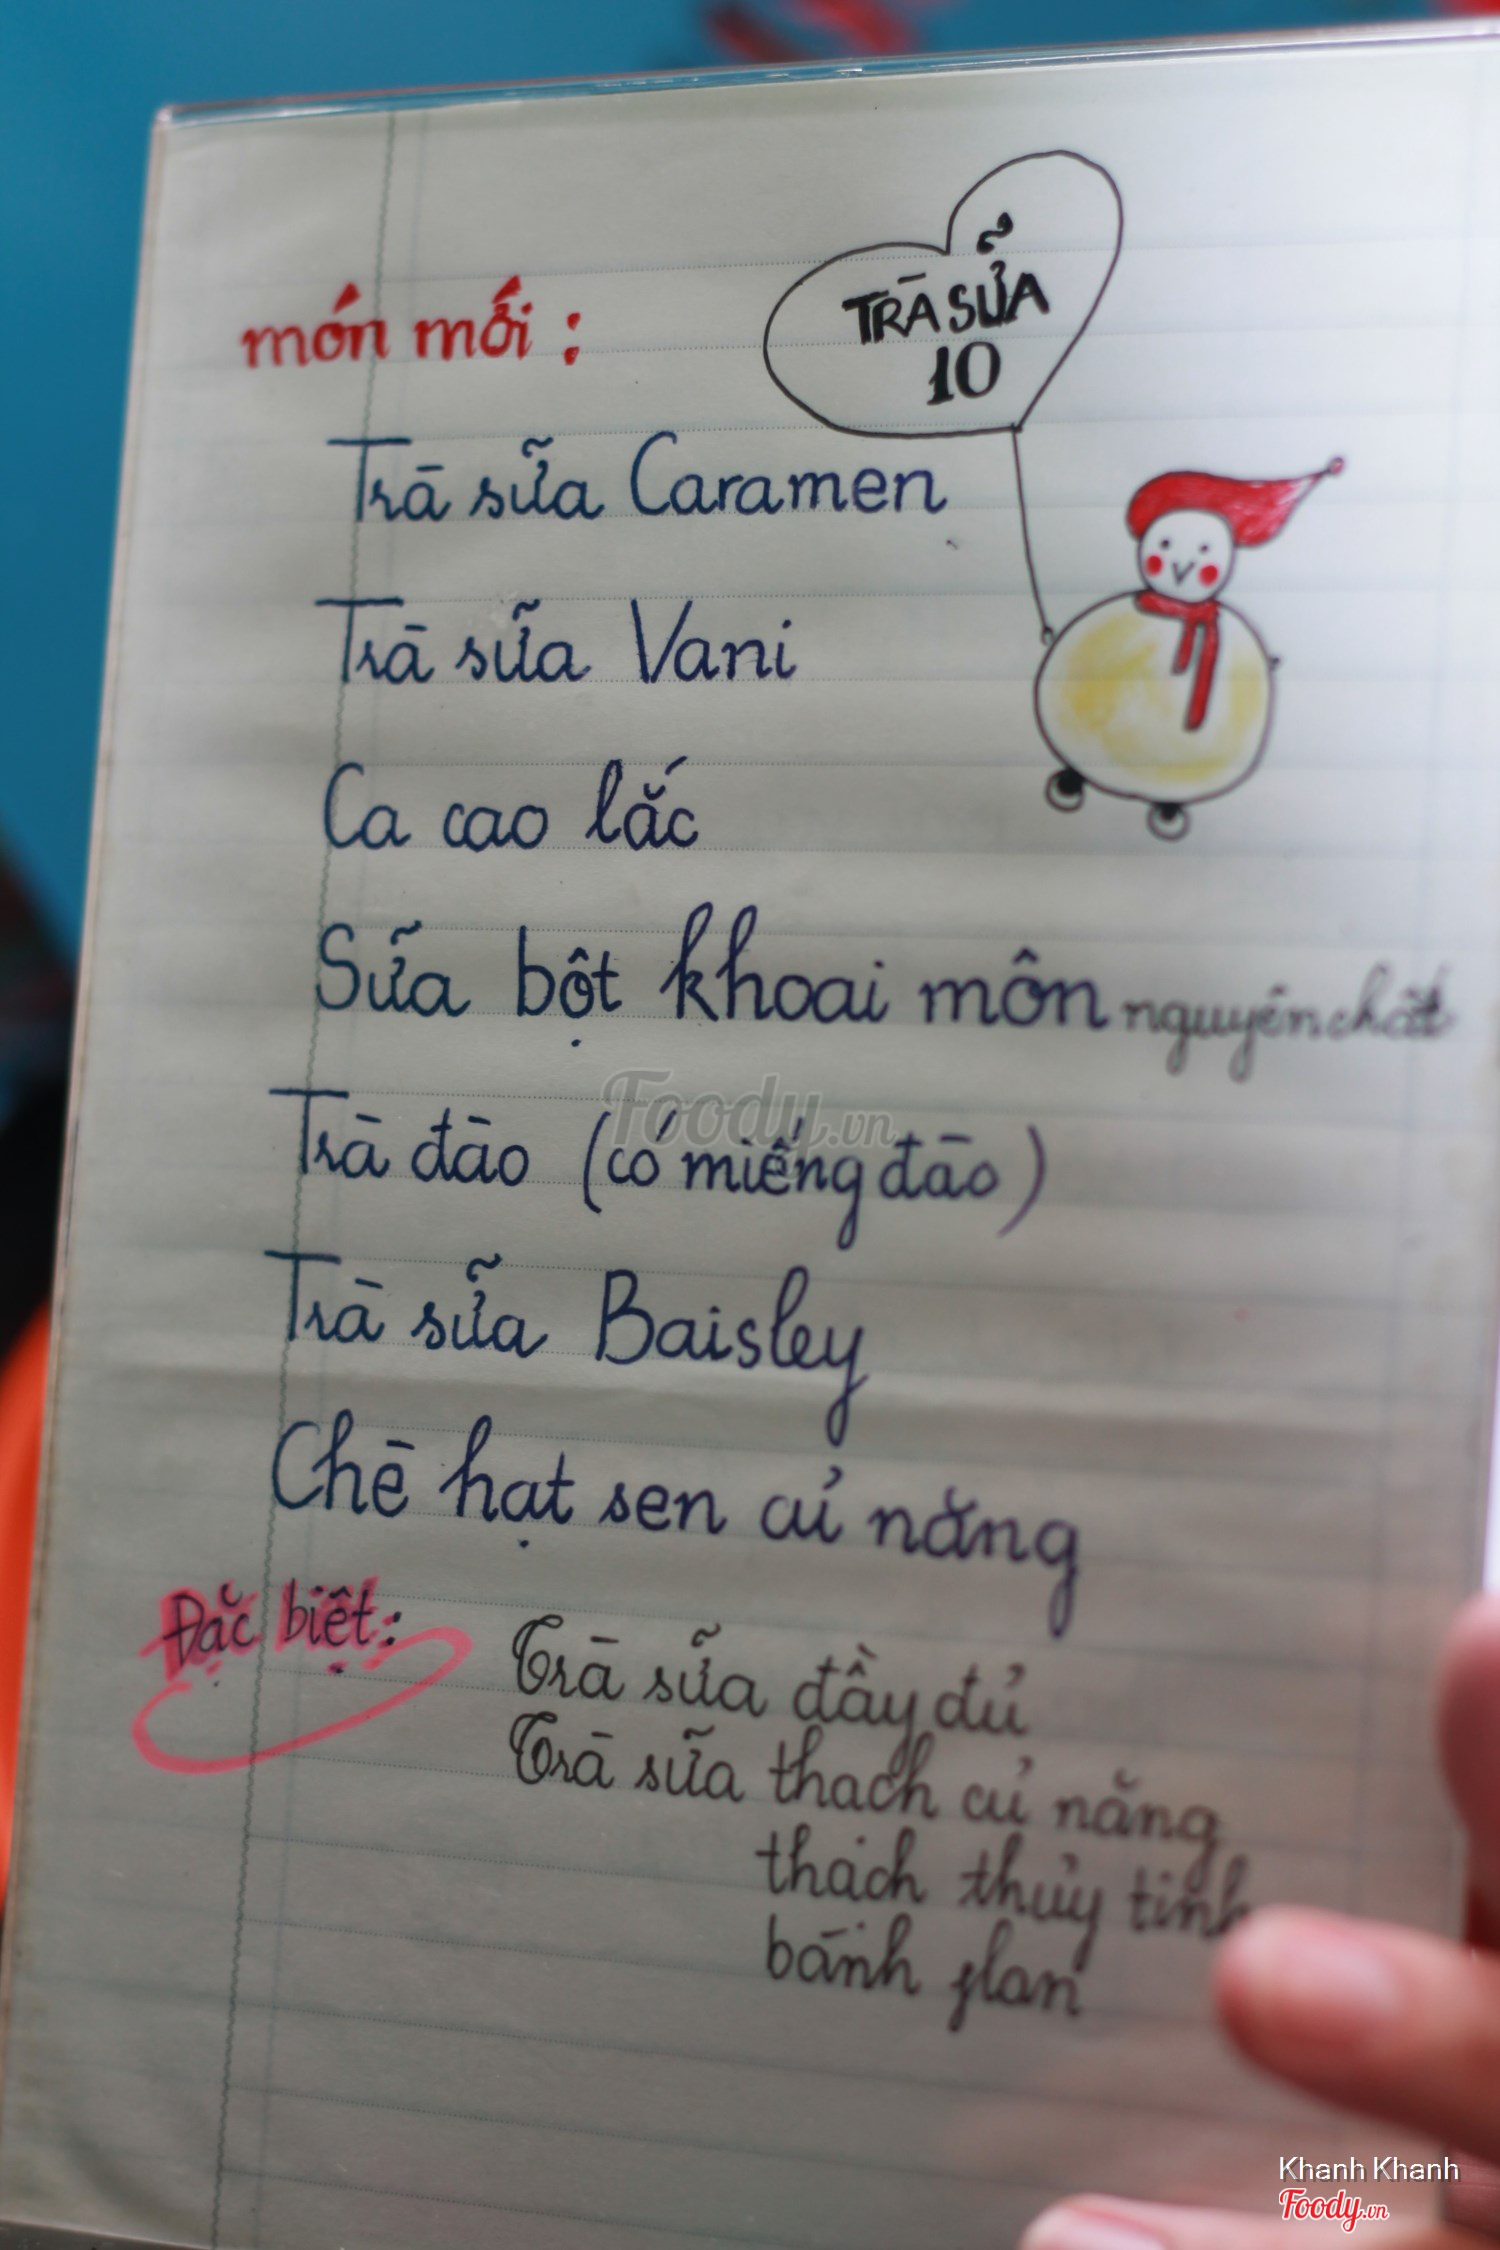 TRÀ SỮA
10
món mới :
Trà sữa Caramen
Trà sữa Vani
Ca cao lắc
Sữa bột khoai môn nguyên chất
Foody.vn
Trà đào (có miếng đào)
Trà sữa Baisley
Chè hạt sen củ năng
Đặc biệt:
Trà sữa đầy đủ
Trà sữa thach củ năng
thạch thủy tinh
bánh flan
Khanh Khanh
Foody.vn